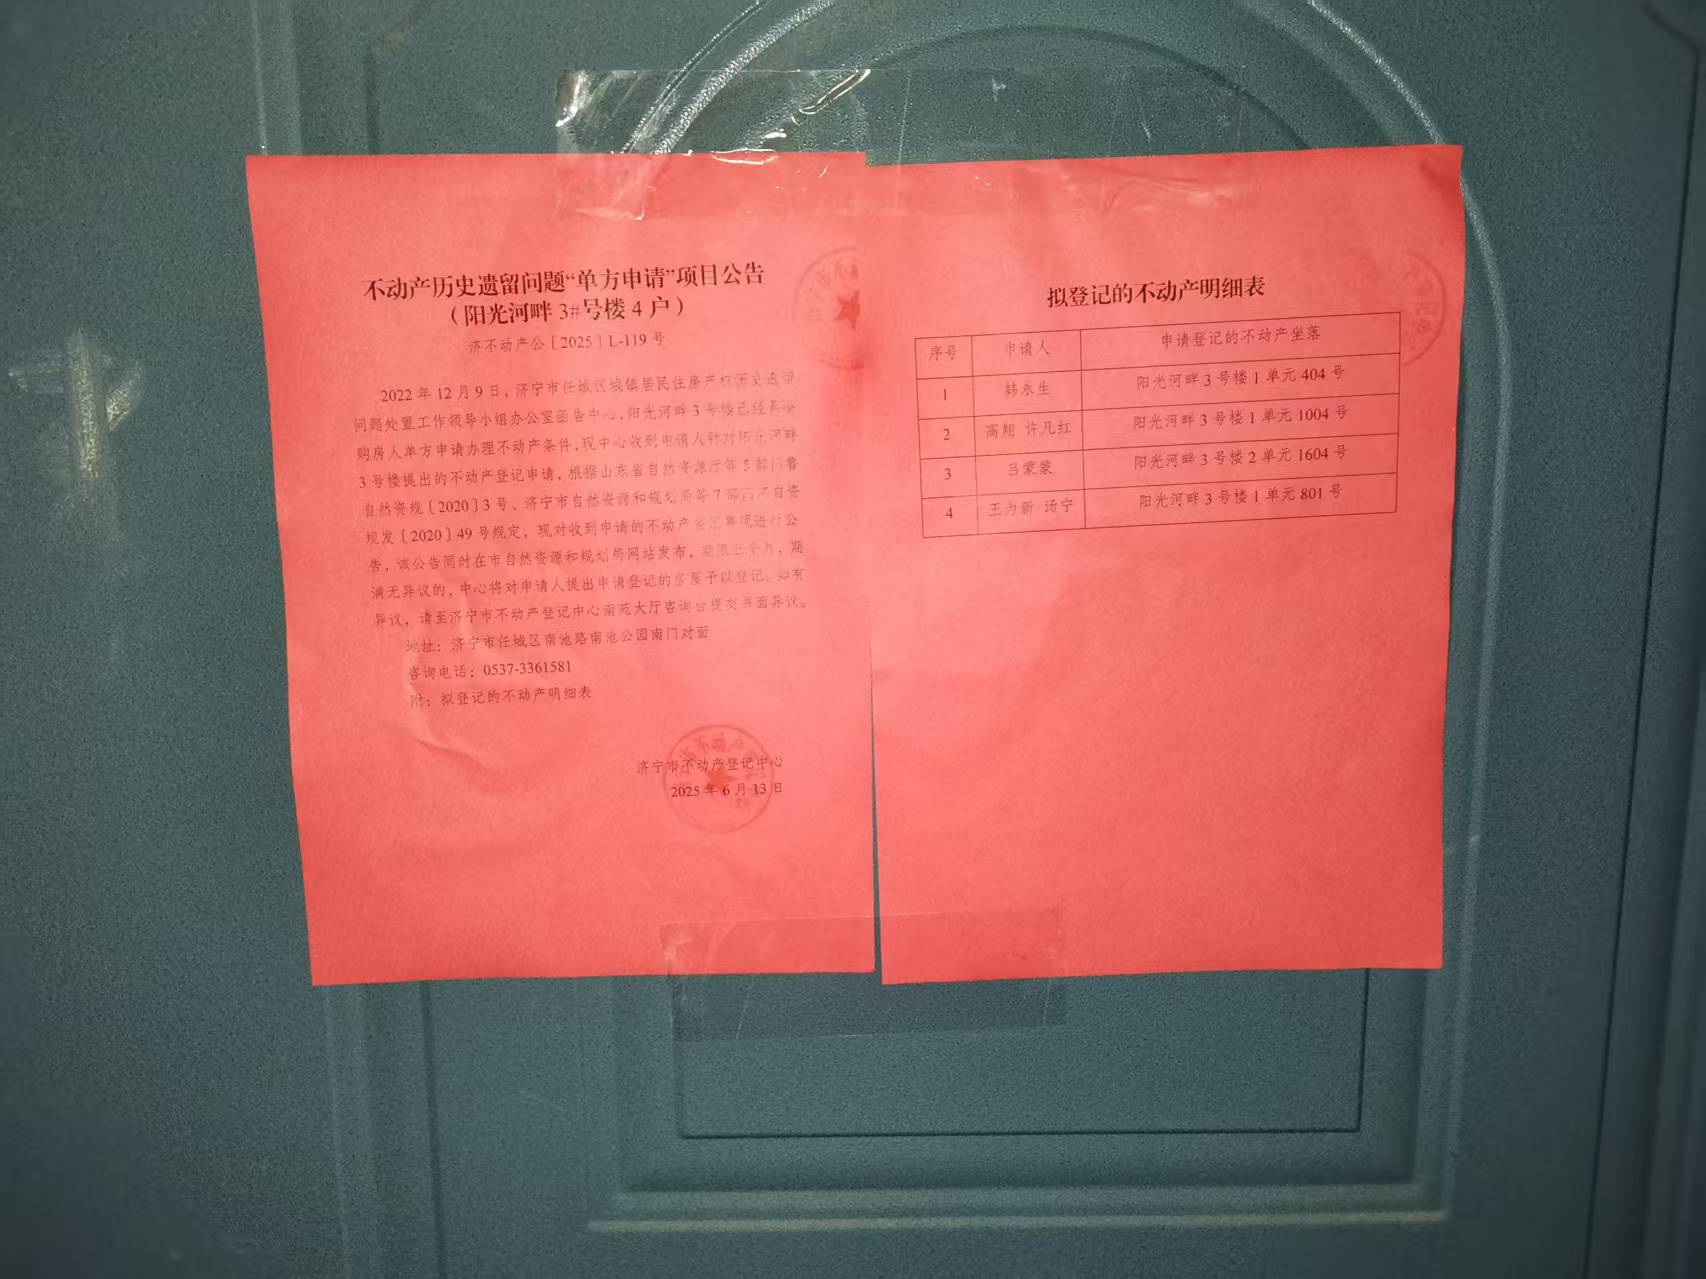 不动产历史遗留问题“单方申请”项目公告
（阳光河畔 3#号楼 4 户）
济不动产公〔2025〕L-119 号
2022 年 12 月 9 日，济宁市任城区城镇居民住房产权历史遗留
问题处置工作领导小组办公室函告中心，阳光河畔 3 号楼已经具备
购房人单方申请办理不动产条件，现中心收到申请人针对阳光河畔
3 号楼提出的不动产登记申请，根据山东省自然资源厅等 5 部门鲁
自然资规〔2020〕3 号、济宁市自然资源和规划局等 7 部门济自资
规发〔2020〕49 号规定，现对收到申请的不动产登记事项进行公
告，该公告同时在市自然资源和规划局网站发布，期限三个月，期
满无异议的，中心将对申请人提出申请登记的房屋予以登记。如有
异议，请至济宁市不动产登记中心南苑大厅咨询台提交书面异议。
地址：济宁市任城区南池路南池公园南门对面
咨询电话：0537-3361581
附：拟登记的不动产明细表
济宁市不动产登记中心
2025 年 6 月 13 日
拟登记的不动产明细表
序号 申请人 申请登记的不动产坐落
1 韩永生 阳光河畔 3 号楼 1 单元 404 号
2 高翔 许凡红 阳光河畔 3 号楼 1 单元 1004 号
3 吕蒙蒙 阳光河畔 3 号楼 2 单元 1604 号
4 王为新 汤宁 阳光河畔 3 号楼 1 单元 801 号